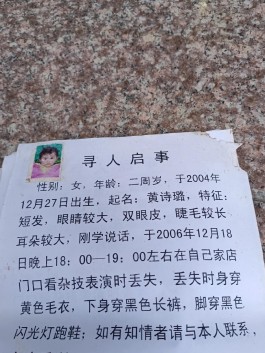 寻人启事
性别：女，年龄：二周岁，于2004年
12月27日出生，起名：黄诗璐，特征：
短发，眼睛较大，双眼皮，睫毛较长
耳朵较大，刚学说话，于2006年12月18
日晚上18：00—19：00左右在自己家店
门口看杂技表演时丢失，丢失时身穿
黄色毛衣，下身穿黑色长裤，脚穿黑色
闪光灯跑鞋；如有知情者请与本人联系，